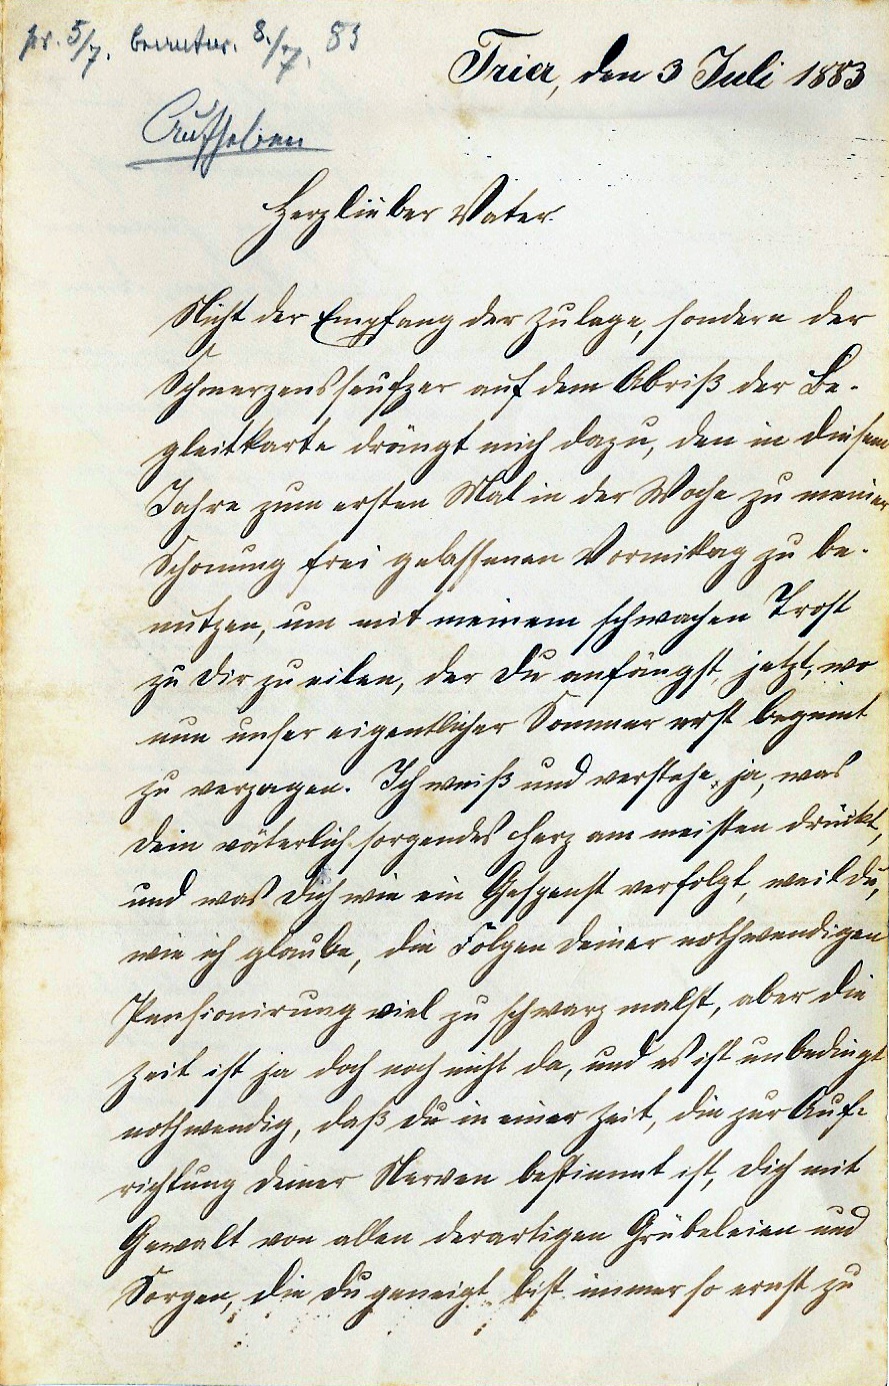 pr. 5/7. beantw. 8./7. 83
Trier, den 3 Juli 1883
Aufheben
Herzlieber Vater.
Nicht der Empfang der Zulage, sondern der
Schmerzensseufzer auf dem Abriß der Be-
gleitkarte drängt mich dazu, den in diesem
Jahre zum ersten Mal in der Woche zu meiner
Schonung frei gelassenen Vormittag zu be-
nutzen, um mit meinem schwachen Trost
zu Dir zu eilen, der Du anfängst, jetzt, wo
nun unser eigentlicher Sommer erst beginnt
zu verzagen. Ich weiß und verstehe ja, was
Dein väterlich sorgendes Herz am meisten drückt,
und was Dich wie ein Gespenst verfolgt, weil Du,
wie ich glaube, die Folgen Deiner nothwendigen
Pensionirung viel zu schwarz malst, aber die
Zeit ist ja doch noch nicht da, und es ist unbedingt
nothwendig, daß Du in einer Zeit, die zur Auf-
richtung Deiner Nerven bestimmt ist, Dich mit
Gewalt von allen derartigen Grübeleien und
Sorgen, die Du geneigt bist immer so ernst zu